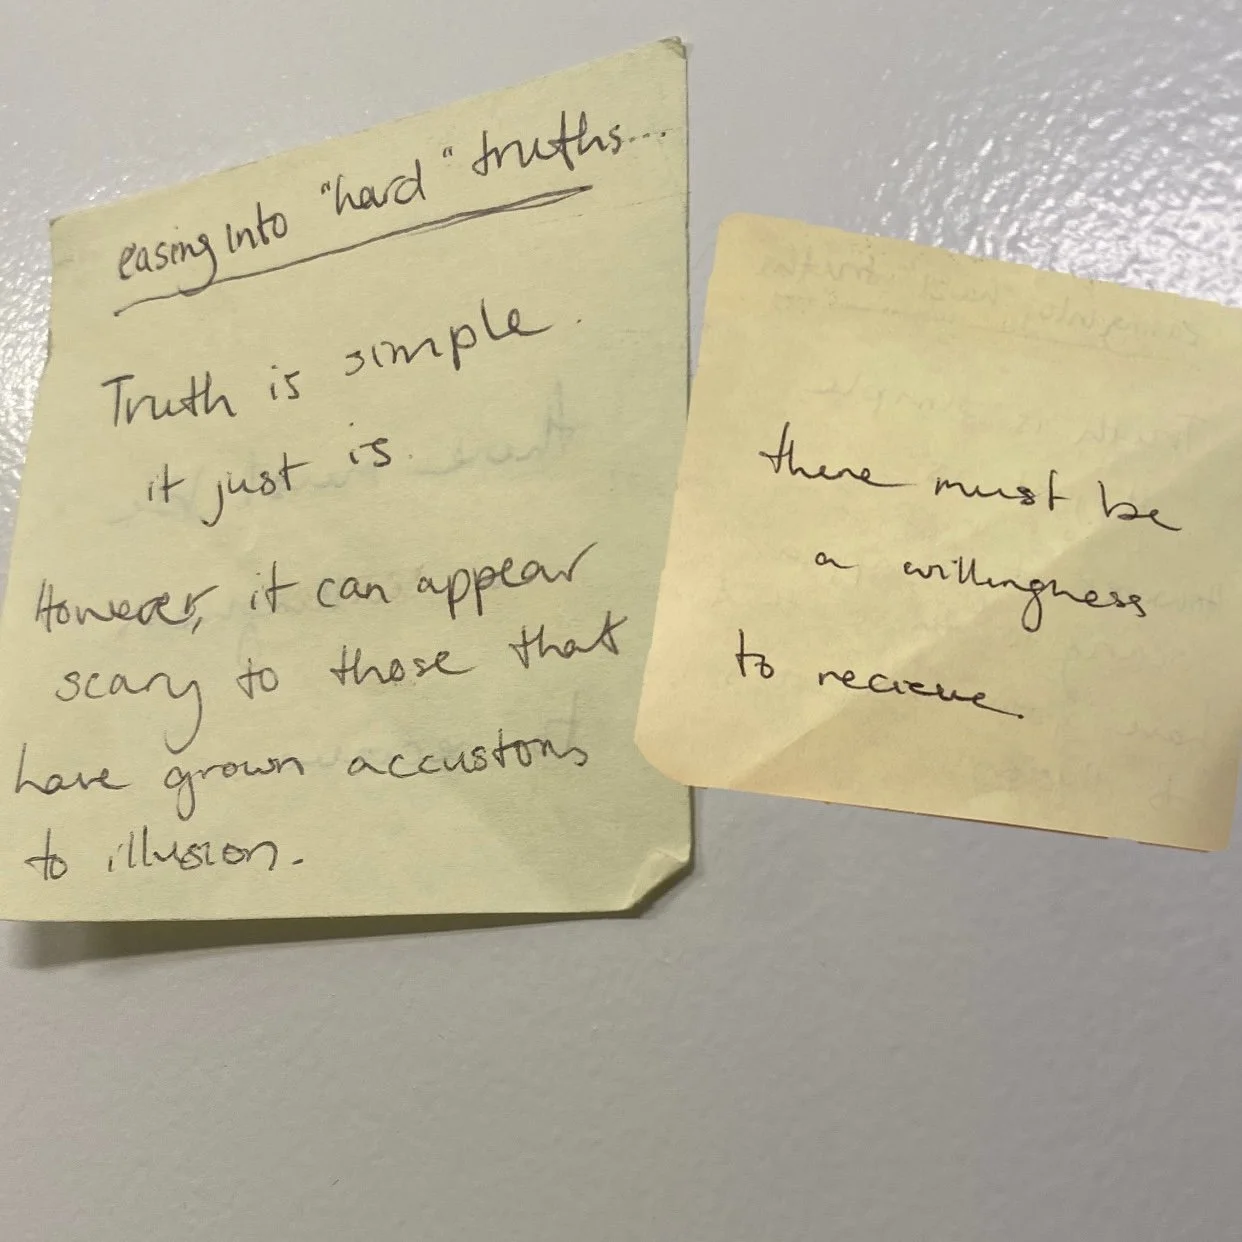 easing into "hard" truths...
Truth is simple.
it just is.
However, it can appear
scary to those that
have grown accustoms
to illusion.
there must be
a willingness
to recieve.